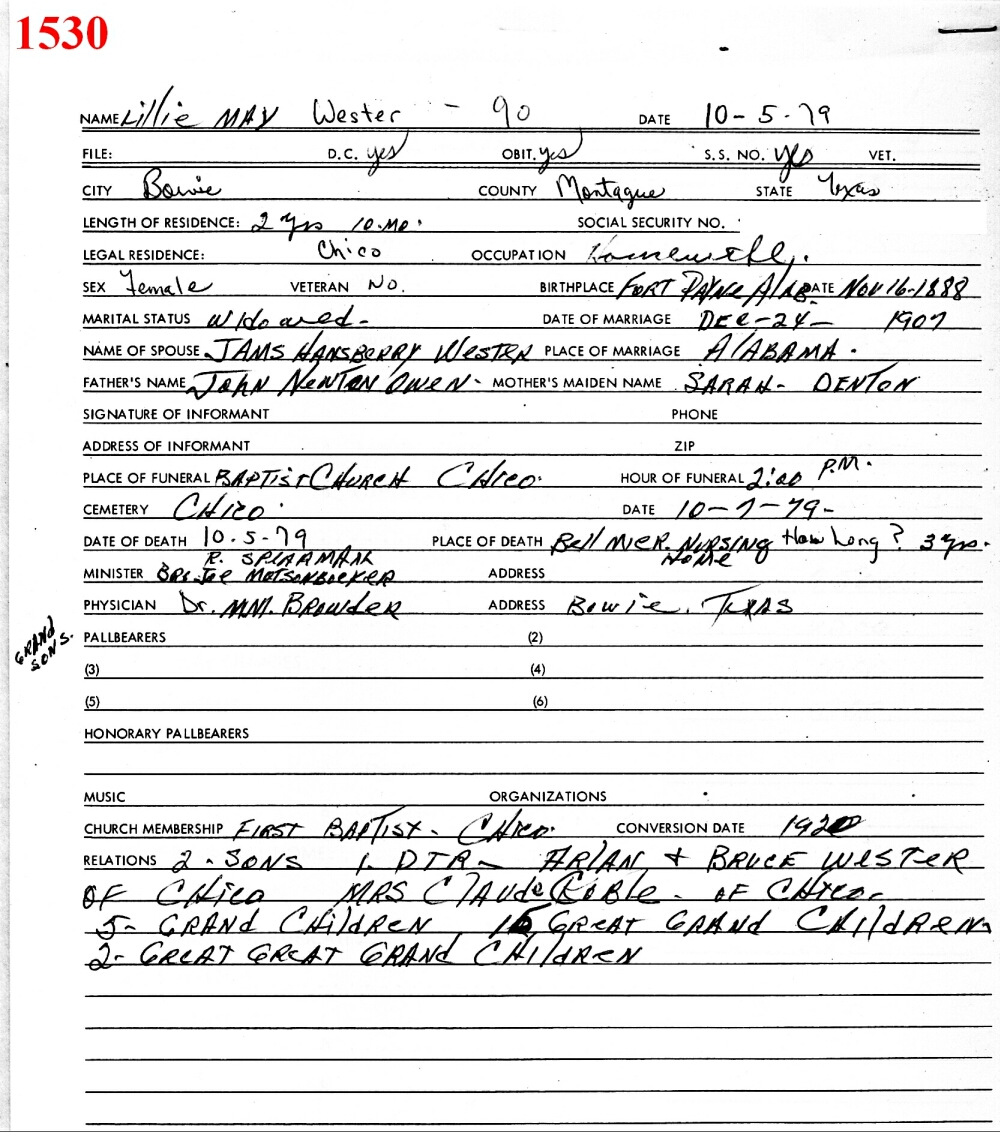 1530
NAME Lillie MAY Wester - 90 DATE 10-5-79
FILE: D.C. yes OBIT. yes S.S. NO. yes VET.
CITY Bowie COUNTY Montague STATE Texas
LENGTH OF RESIDENCE: 2 yrs 10-MO. SOCIAL SECURITY NO.
LEGAL RESIDENCE: Chico OCCUPATION
SEX Female VETERAN No. BIRTHPLACE FORT PAYNE AlAB DATE NOV 16-1888
MARITAL STATUS Widowed- DATE OF MARRIAGE DEC-24- 1907
NAME OF SPOUSE JAMS HANSBERRY WESTER PLACE OF MARRIAGE AlABAMA.
FATHER'S NAME JOHN NEWTON OWEN- MOTHER'S MAIDEN NAME SARAH- DENTON
SIGNATURE OF INFORMANT PHONE
ADDRESS OF INFORMANT ZIP
PLACE OF FUNERAL BAPTIST CHURCH CHICO. HOUR OF FUNERAL 2:00 P.M.
CEMETERY CHICO. DATE 10-7-79-
DATE OF DEATH 10-5-79 PLACE OF DEATH Bellmire NURSING HOME How Long? 3 yrs.
R. SPEARMAN
MINISTER Bro. Joe ADDRESS
PHYSICIAN Dr. M.M. BROWDER ADDRESS Bowie, TEXAS
GRAND SONS.
PALLBEARERS (2)
(3) (4)
(5) (6)
HONORARY PALLBEARERS
MUSIC ORGANIZATIONS
CHURCH MEMBERSHIP FIRST BAPTIST- CHICO. CONVERSION DATE 1920
RELATIONS 2-SONS 1. DTR- ARlAN + BRUCE WESTER
OF CHICO MRS ClAUDE COBLE- OF CHICO-
5- GRAND CHildREN 15 GREAT GRAND CHildREN
2- GREAT GREAT GRAND CHildREN